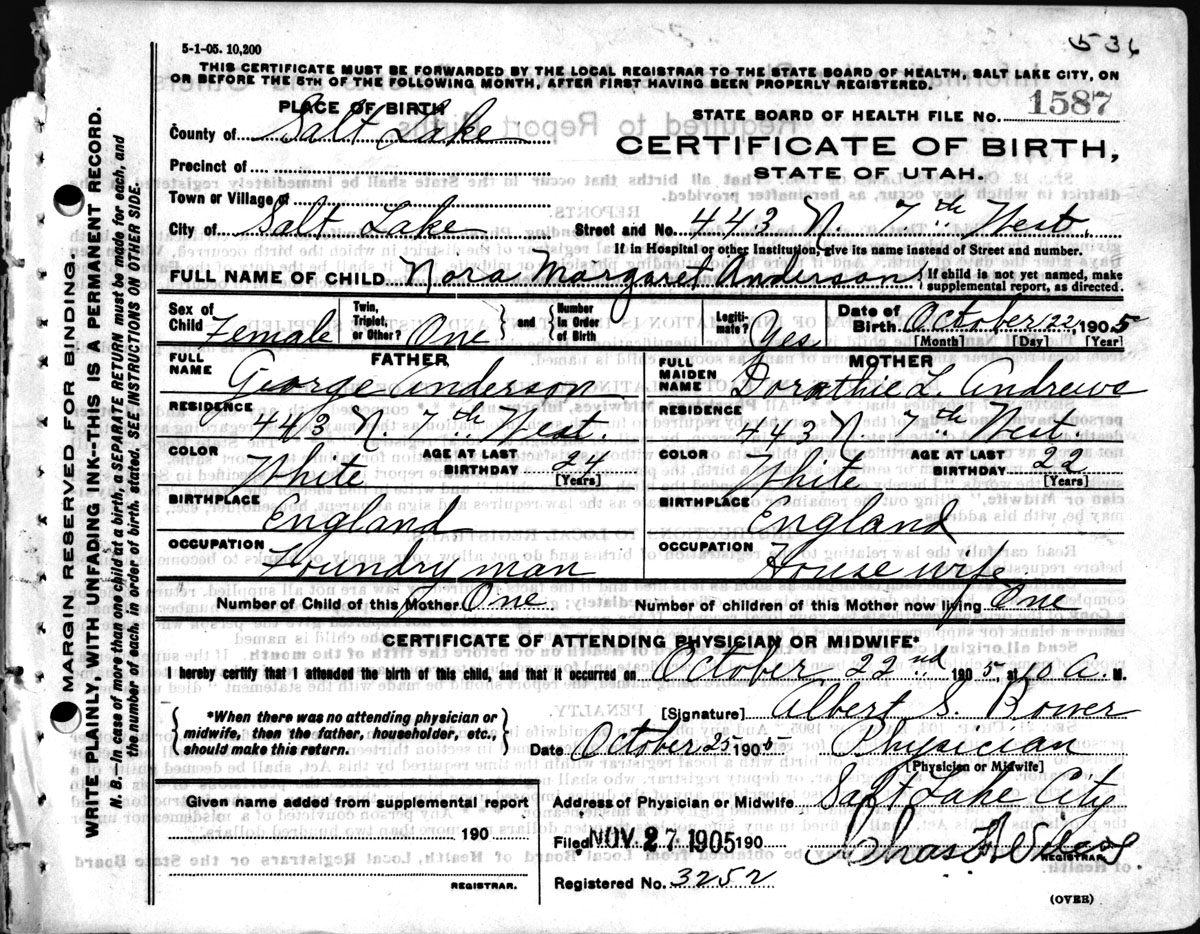 5-1-05. 10,200
536
THIS CERTIFICATE MUST BE FORWARDED BY THE LOCAL REGISTRAR TO THE STATE BOARD OF HEALTH, SALT LAKE CITY, ON
OR BEFORE THE 5TH OF THE FOLLOWING MONTH, AFTER FIRST HAVING BEEN PROPERLY REGISTERED.
PLACE OF BIRTH
STATE BOARD OF HEALTH FILE NO. 1587
County of Salt Lake
CERTIFICATE OF BIRTH,
Precinct of
STATE OF UTAH.
Town or Village of
City of Salt Lake Street and No. 443 N. 7th West.
If in Hospital or other Institution, give its name instead of Street and number.
FULL NAME OF CHILD Nora Margaret Anderson { If child is not yet named, make
supplemental report, as directed.
Sex of Child Female Twin, Triplet, or Other? One } and { Number in Order of Birth Legiti-mate? Yes Date of Birth October 22, 1905
[Month] [Day] [Year]
FATHER
FULL NAME George Anderson
RESIDENCE 443 N. 7th West.
COLOR White AGE AT LAST BIRTHDAY 24 [Years]
BIRTHPLACE England
OCCUPATION Foundry man
MOTHER
FULL MAIDEN NAME Dorathie L. Andrews
RESIDENCE 443 N. 7th West.
COLOR White AGE AT LAST BIRTHDAY 22 [Years]
BIRTHPLACE England
OCCUPATION House wife
Number of Child of this Mother One Number of children of this Mother now living One
CERTIFICATE OF ATTENDING PHYSICIAN OR MIDWIFE*
I hereby certify that I attended the birth of this child, and that it occurred on October 22nd 1905, at 10 a. M.
{ *When there was no attending physician or
midwife, then the father, householder, etc.,
should make this return. }
[Signature] Albert S. Bower
Date October 25 1905 Physician
[Physician or Midwife]
Given name added from supplemental report
190
REGISTRAR.
Address of Physician or Midwife Salt Lake City
Filed NOV 27 1905 190
REGISTRAR.
Registered No. 3252
(OVER)
MARGIN RESERVED FOR BINDING.
WRITE PLAINLY WITH UNFADING INK--THIS IS A PERMANENT RECORD.
N. B.--In case of more than one child at a birth, a SEPARATE RETURN must be made for each, and
the number of each, in order of birth, stated. SEE INSTRUCTIONS ON OTHER SIDE.